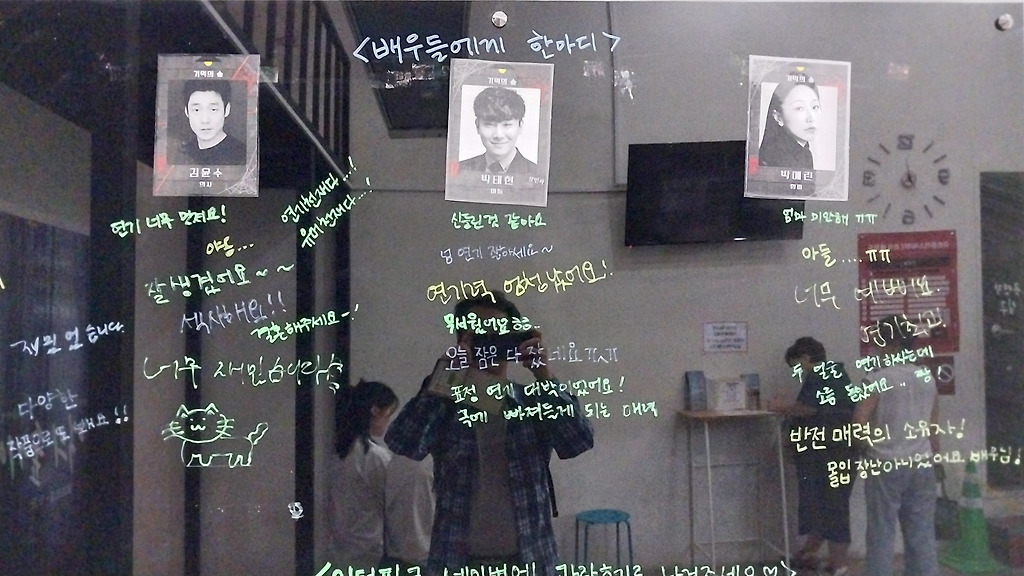 <배우들에게 한마디>
기억의 숲
김윤수
형사
기억의 숲
박태현
기억의 숲
박예린
연기 너무 멋져요!
연기천재다...!
유해천재다...!
야옹...
잘생겼어요~~
섹시해요!!
결혼해주세요~!
너무 재밌습니다
재밌었습니다.
다양한
신들린것 같아요
넘 연기 잘하세요~
연기력 엄청났어요!
무서웠어요ㅎㅎ
오늘 잠은 다 잤네요ㅠㅠ
표정 연기 대박이었어요!
극에 빠져들게 되는 매력
엄마 미안해 ㅠㅠ
아들....ㅠㅠ
너무 예뻐요
연기하시는데
소름 돋았어요.. 짱!
반전 매력의 소유자!
몰입 장난아니었어요 배우님!